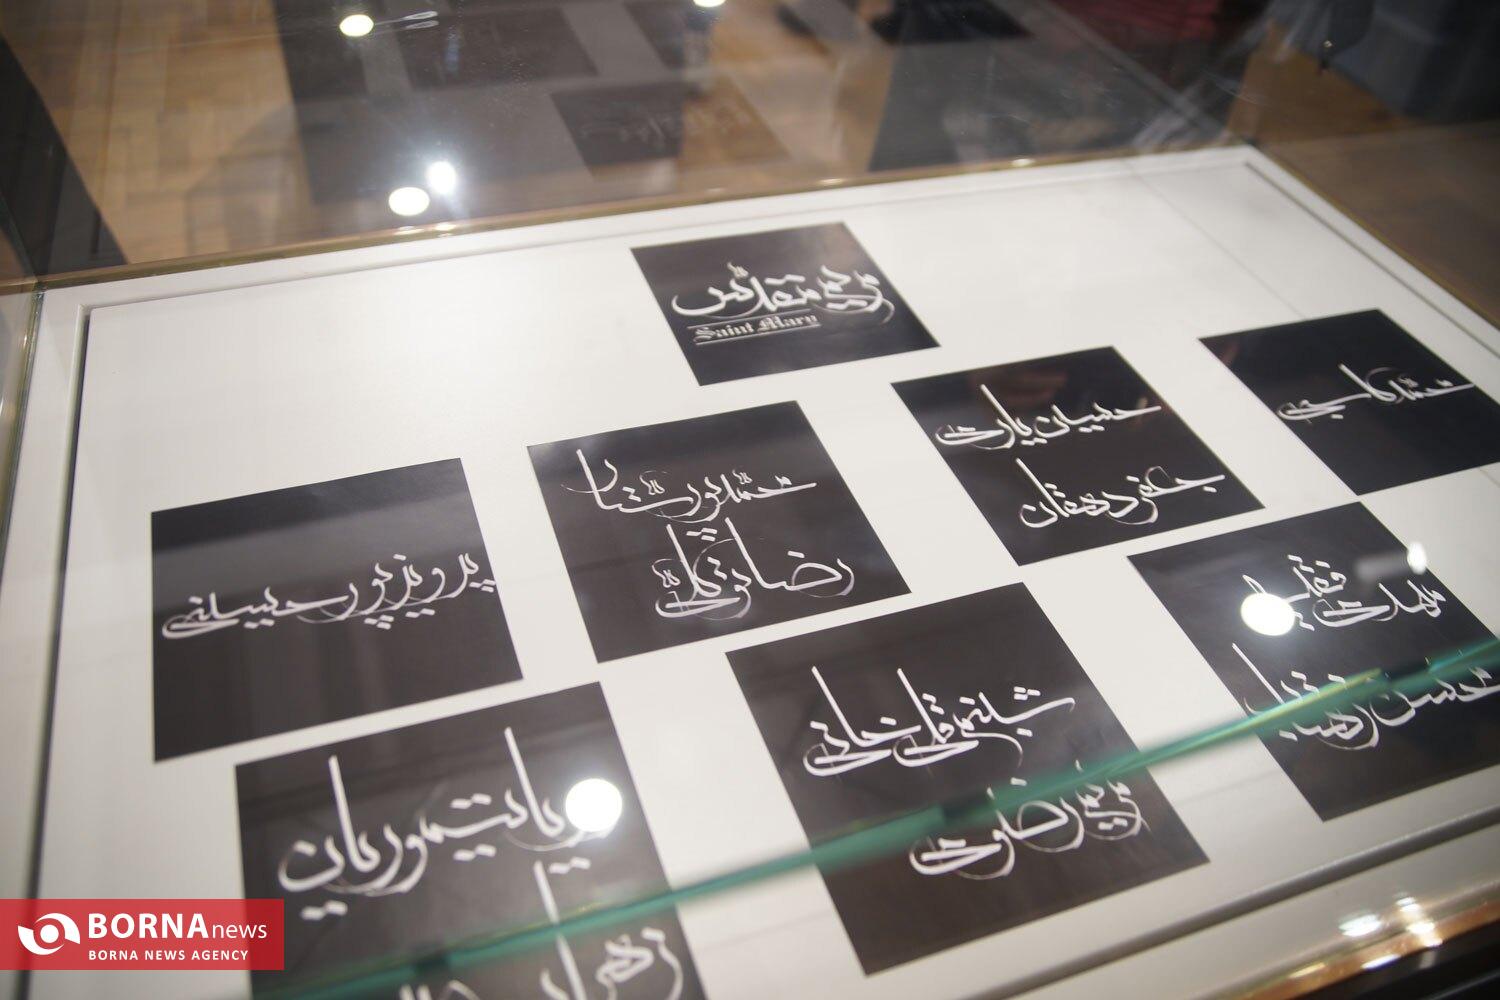 مریم مقدّس
Saint Mary
محمّد کاسبی
حسین یاری
جعفر دهقان
محمّد پورستار
رضا توکّلی
پرویز پورحسینی
مهدی فقیه
شبنم قلی خانی
مریم رضوی
پانته‌آ تیموریان
زهرا
BORNA news
BORNA NEWS AGENCY